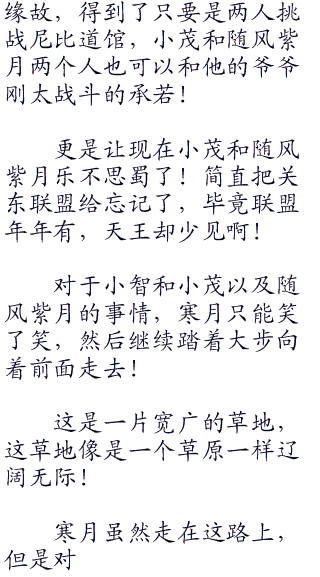 缘故，得到了只要是两人挑
战尼比道馆，小茂和随风紫
月两个人也可以和他的爷爷
刚太战斗的承若！
更是让现在小茂和随风
紫月乐不思蜀了！简直把关
东联盟给忘记了，毕竟联盟
年年有，天王却少见啊！
对于小智和小茂以及随
风紫月的事情，寒月只能笑
了笑，然后继续踏着大步向
着前面走去！
这是一片宽广的草地，
这草地像是一个草原一样辽
阔无际！
寒月虽然走在这路上，
但是对